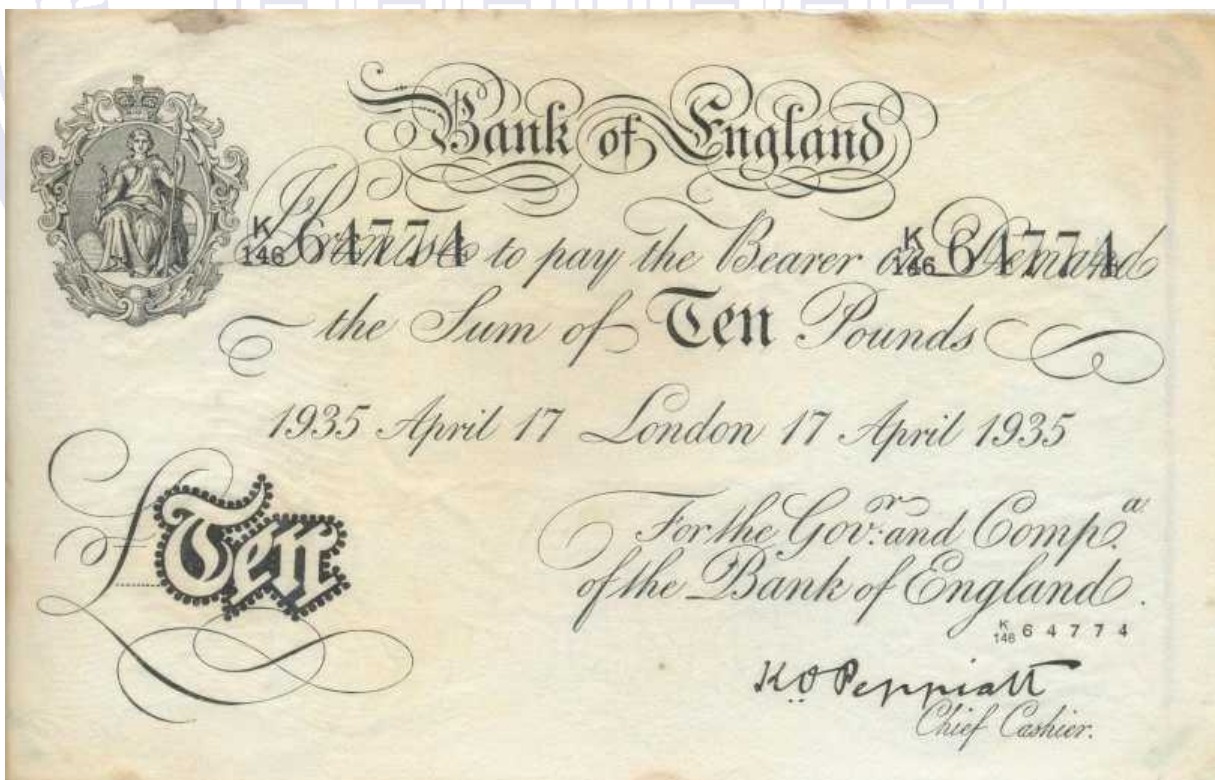 Bank of England
K
146 64774 K
146 64774
I Promise to pay the Bearer on Demand
the Sum of Ten Pounds
1935 April 17 London 17 April 1935
£Ten
For the Gov.r and Comp.a
of the Bank of England.
K
146 64774
K O Peppiatt
Chief Cashier.